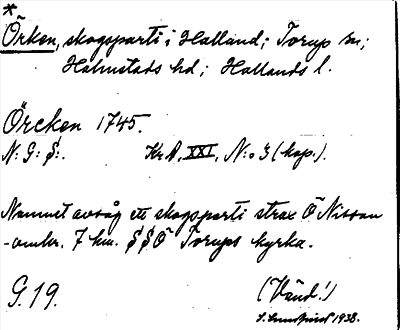 *
Örken, skogsparti i Halland; Torup sn;
Halmstads hd; Hallands l.
Örcken 1745.
N: G: S:. Kr. A. XXI, N:o 3 (kop.).
Namnet avsåg ett skogsparti strax Ö Nissan
omkr. 7 km. SSÖ Torups kyrka.
G. 19. (Vänd!)
1938.